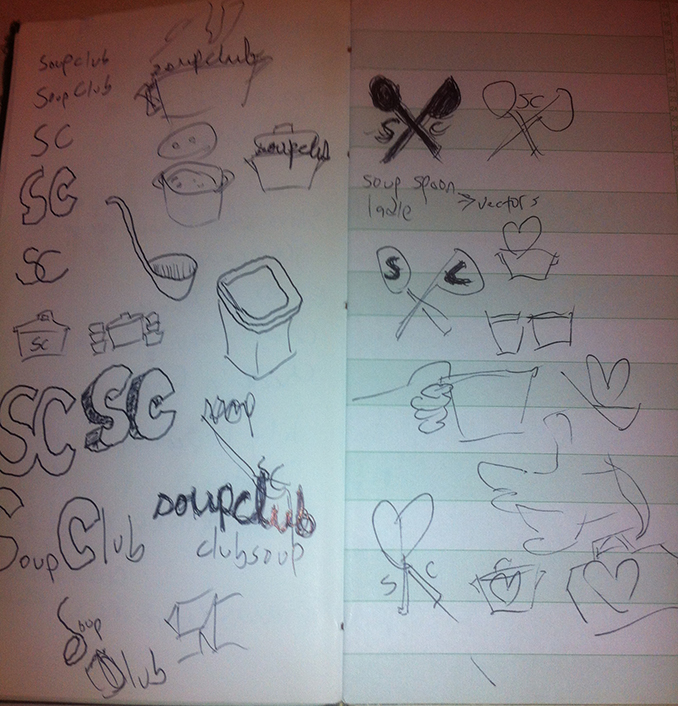 Soupclub
SoupClub
soupclub
SC
soupclub
SC
SC
SC
SC SC
soupclub
SC
clubsoup
SoupClub
Soup
Club
S C
SC
soup spoon
ladle
> vectors
S C
S C
C